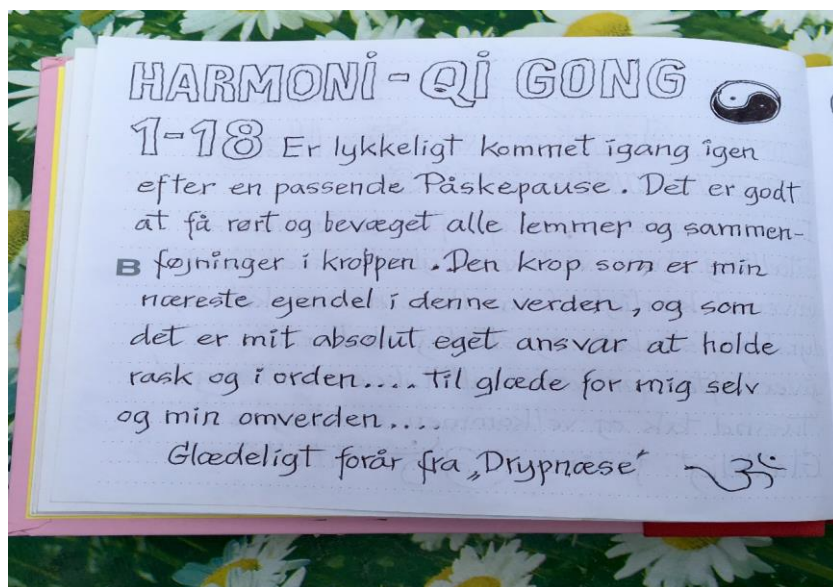 HARMONi-Qi GONG
1-18 Er lykkeligt kommet igang igen
efter en passende Påskepause. Det er godt
at få rørt og bevæget alle lemmer og sammen-
B føjninger i kroppen. Den krop som er min
næreste ejendel i denne verden, og som
det er mit absolut eget ansvar at holde
rask og i orden.... til glæde for mig selv
og min omverden....
Glædeligt forår fra „Drypnæse"